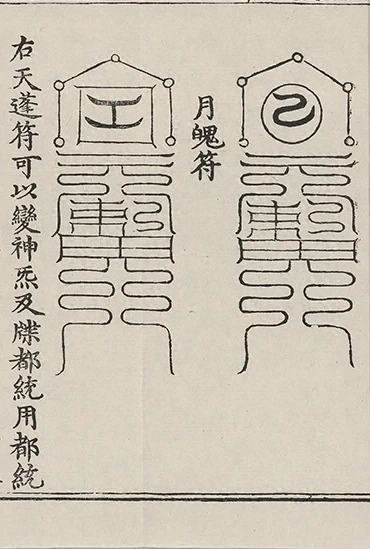 月魄符
右天蓬符可以變神炁及牒都統用都統